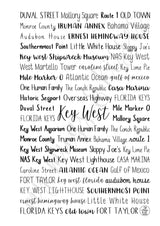 DUVAL STREET Mallory Square Route 1 OLD TOWN
Monroe County TRUMAN ANNEX Bahama Village
Audubon House ERNEST HEMINGWAY HOUSE
Southernmost Point Little White House Sloppy Joe's
Key West Shipwreck Museum NAS Key West
West Martello Tower
Mile Marker 0 Atlantic Ocean gulf of mexico
One Human Family The Conch Republic Casa Marina
Historic Seaport Overseas Highway FLORIDA KEYS
Duval Street
FLORIDA KEYS
Mile Marker 0
Key West
Mallory Square
Key West Aquarium One Human Family
Monroe County Truman Annex Bahama Village route 1
Key West Shipwreck Museum Sloppy Joe's Key Lime Pie
NAS Key West Key West Lighthouse CASA MARINA
Caroline Street ATLANTIC OCEAN Gulf of Mexico
FORT TAYLOR key west florida audubon house
KEY WEST LIGHTHOUSE SOUTHERNMOST POINT
ernest hemingway house Little White House
FLORIDA KEYS old town FORT TAYLOR